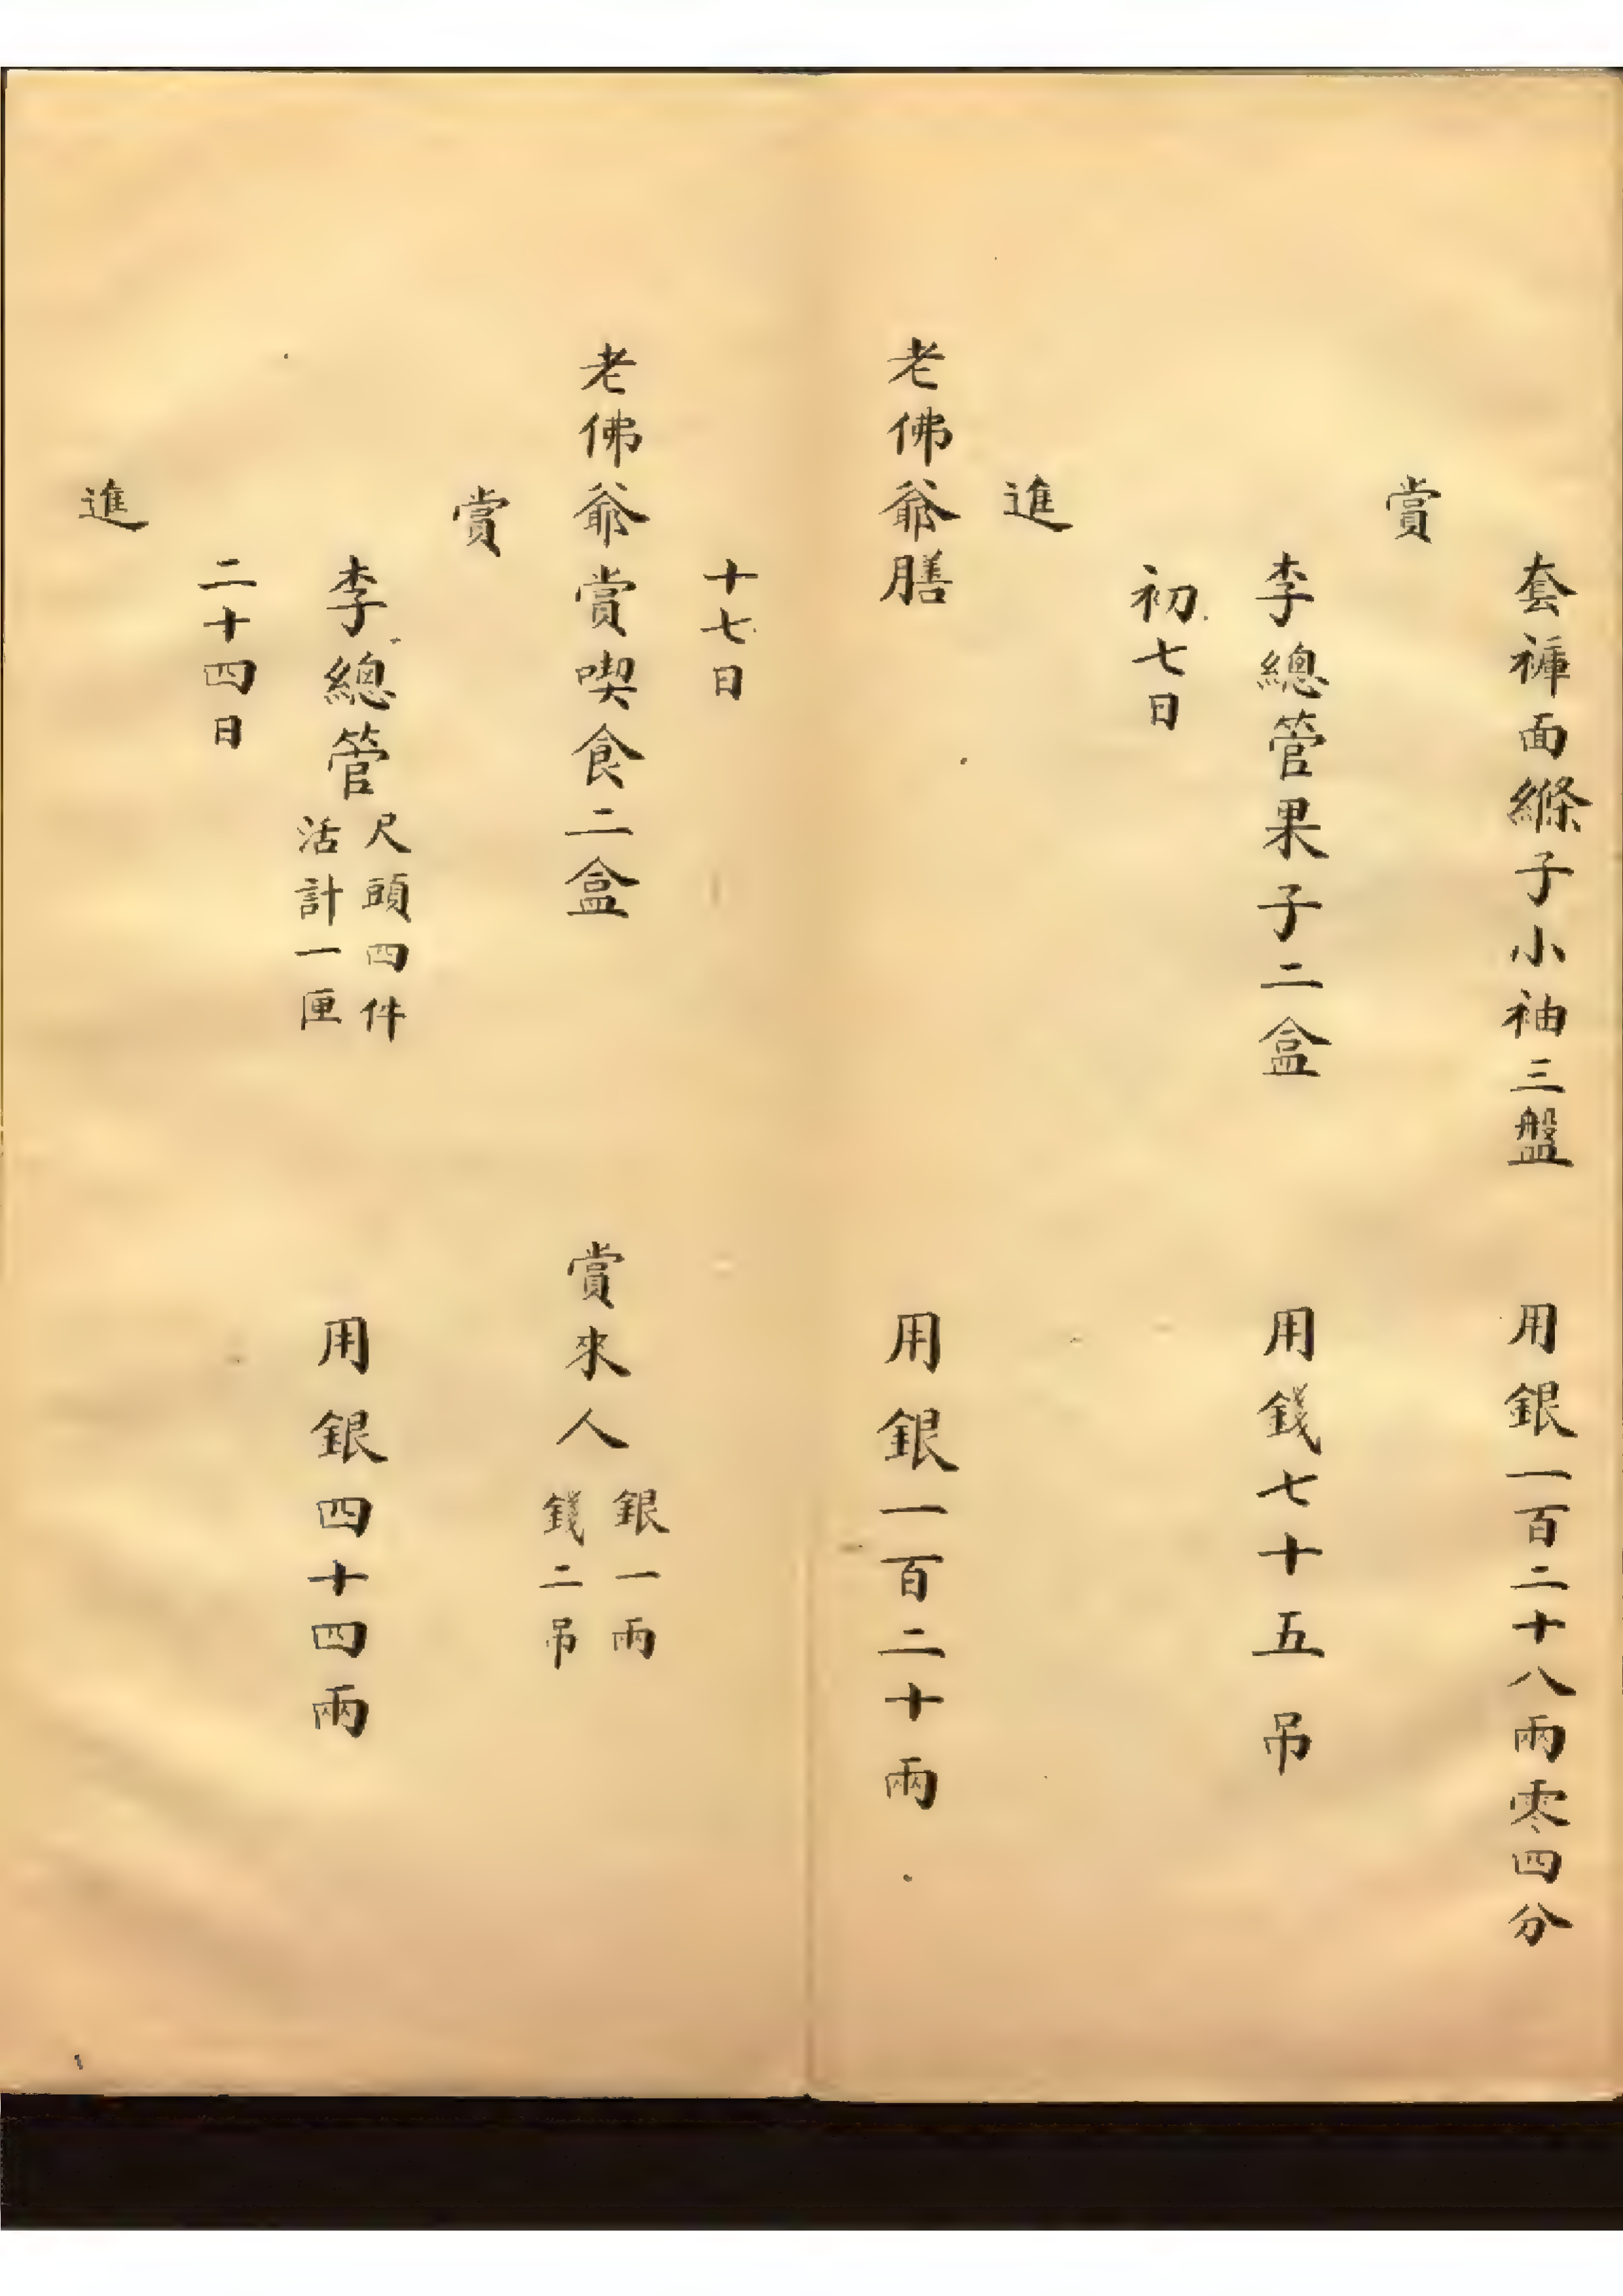 套褲面縧子小袖三盤　用銀一百二十八兩零四分
賞
李總管果子二盒　用錢七十五吊
初七日
進
老佛爺膳　用銀一百二十兩
十七日
老佛爺賞喫食二盒　賞來人銀一兩錢二吊
賞
李總管尺頭四件活計一匣　用銀四十四兩
二十四日
進